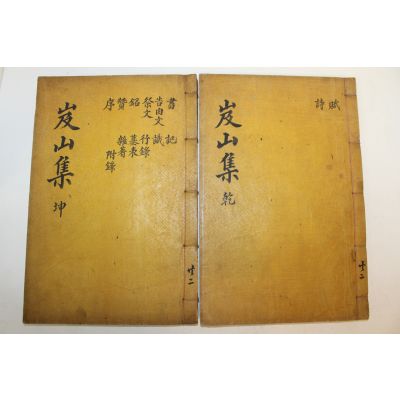 賦
詩
共二
岌山集 乾
書 記
告由文 識
祭文 行錄
銘 墓表
贊 雜著
序 附錄
共二
岌山集 坤